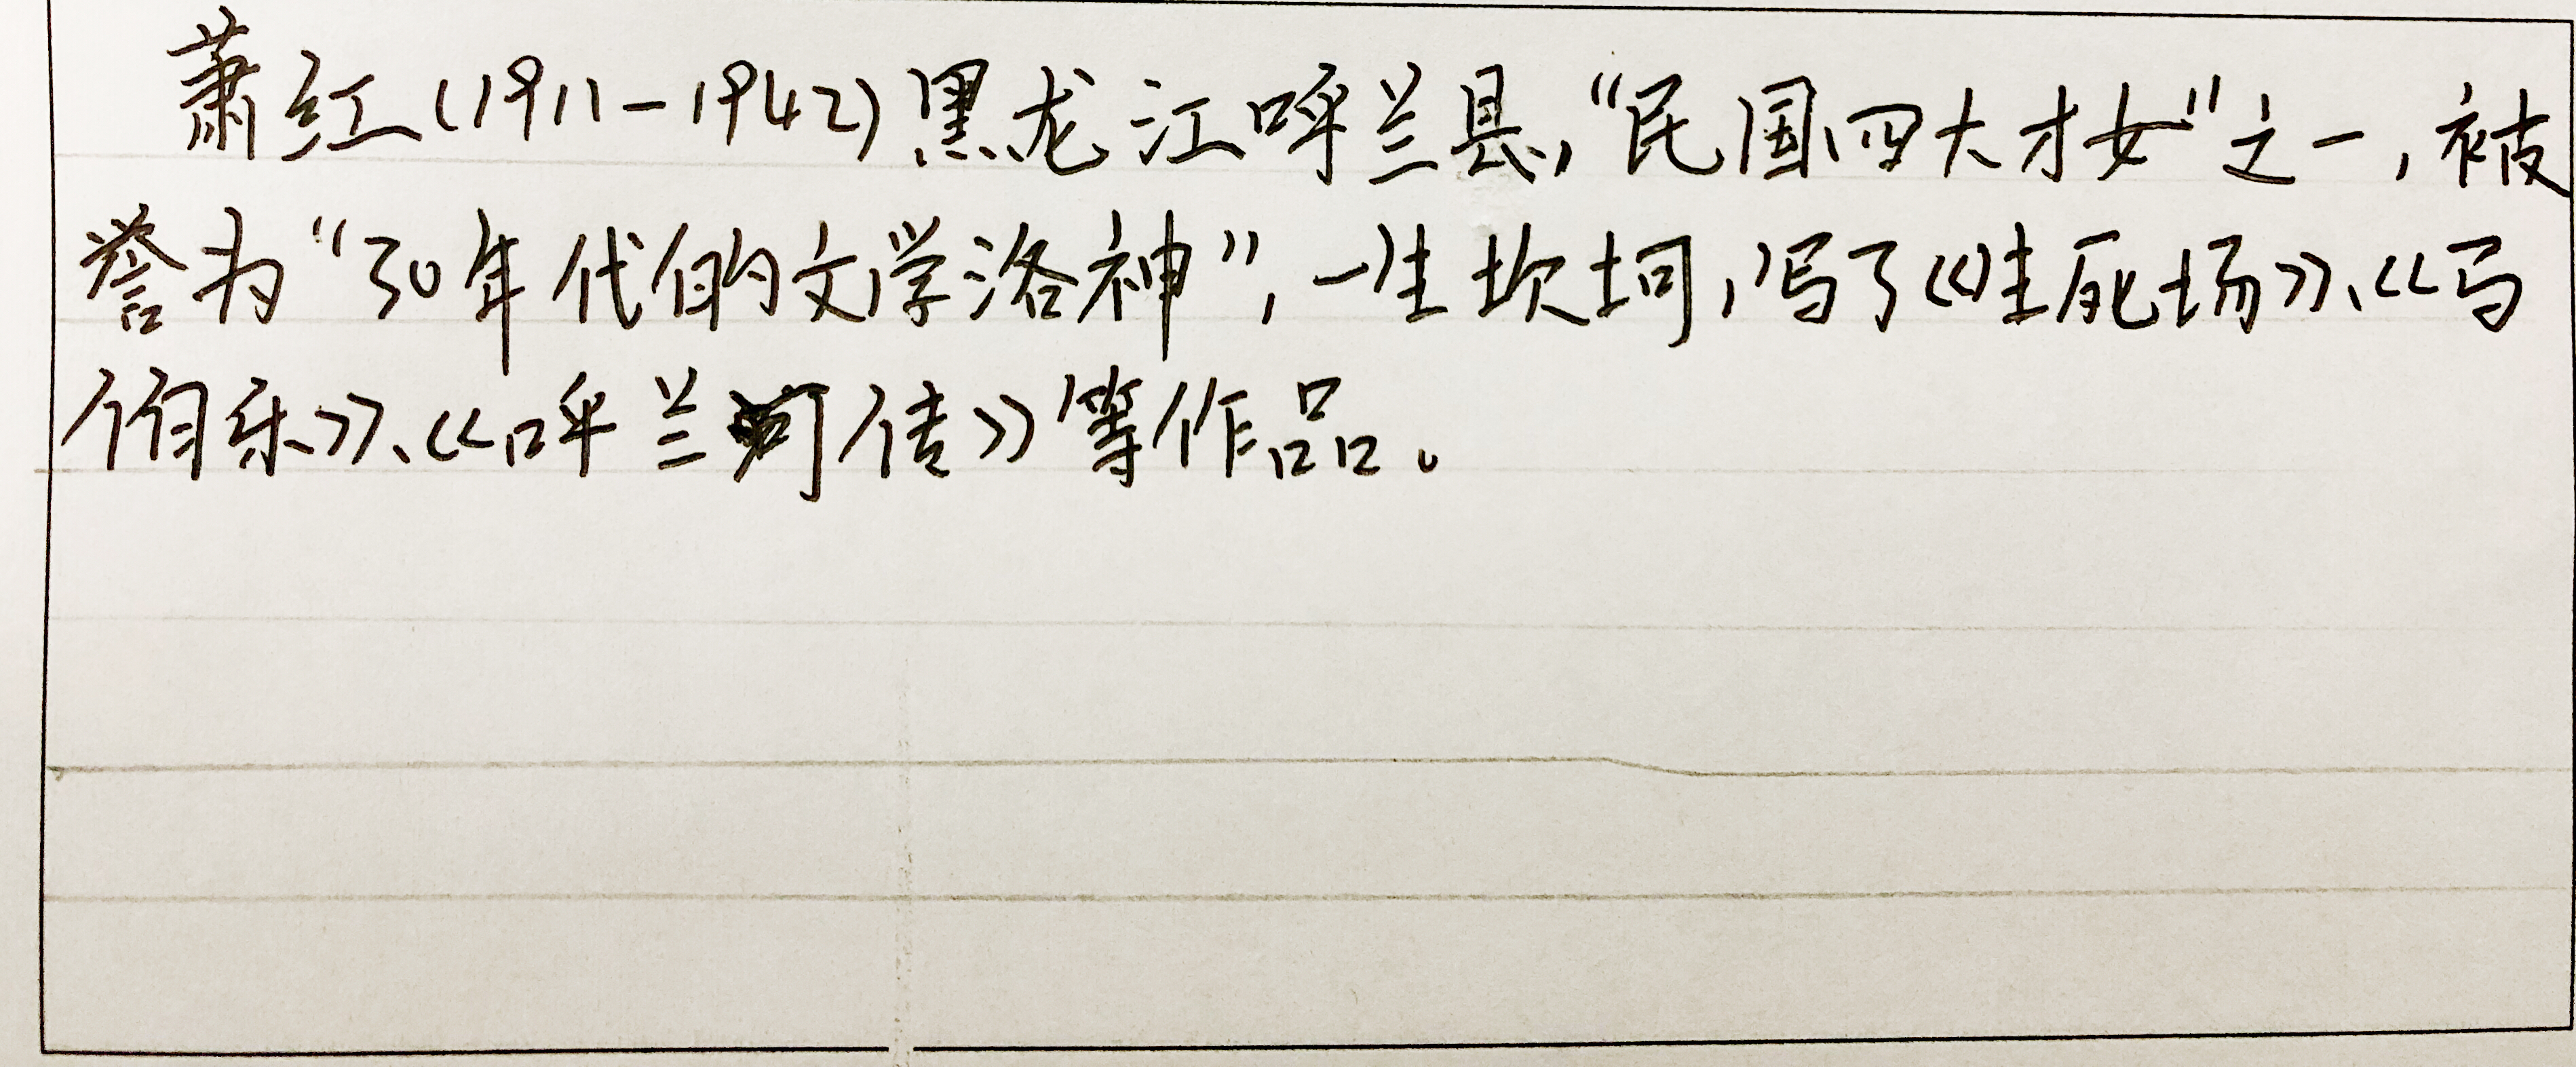 萧红(1911-1942)黑龙江呼兰县,“民国四大才女”之一,被
誉为“30年代的文学洛神”,一生坎坷,写了《生死场》、《马
伯乐》、《呼兰河传》等作品。